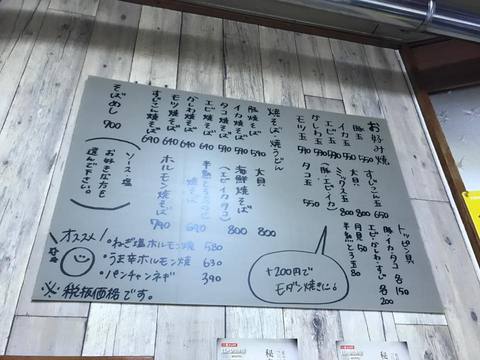 お好み焼
豚玉 550
イカ玉 550
エビ玉 590
かしわ玉 590
モツ玉 590
すじこん玉 650
大貝 800
ミックス玉 800
(豚・エビ・イカ)
タコ玉 550
トッピン具
豚・イカ・タコ 各150
エビ・かしわ・すじ 各200
月見 50
半熟とろ玉 80
+200円で
モダン焼きに。
焼そば・焼うどん
豚焼そば 590
イカ焼そば 590
タコ焼そば 590
エビ焼そば 640
かしわ焼そば 640
モツ焼そば 640
すじこん焼そば 640
大貝 800
海鮮焼そば 800
(エビ・イカ・タコ)
焼そば 690
ホルモン焼そば 790
そばめし 700
(ソース・塩
お好きな方を
選んで下さい。)
オススメ!
・ねぎ塩ホルモン焼 580
・うま辛ホルモン焼 630
・パンチャンネギ 390
※税抜価格です。